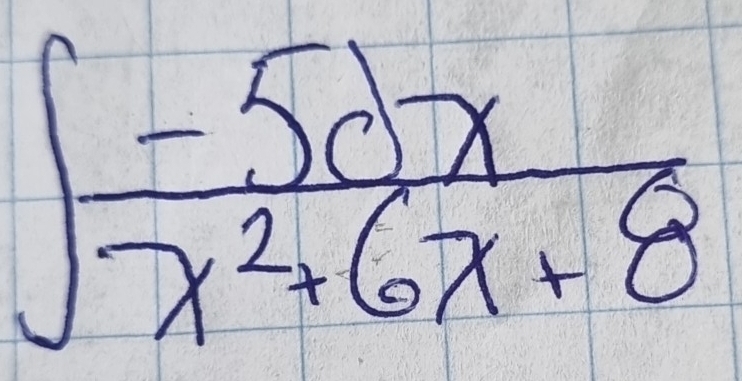 ∫ -5dx / x² + 6x + 8